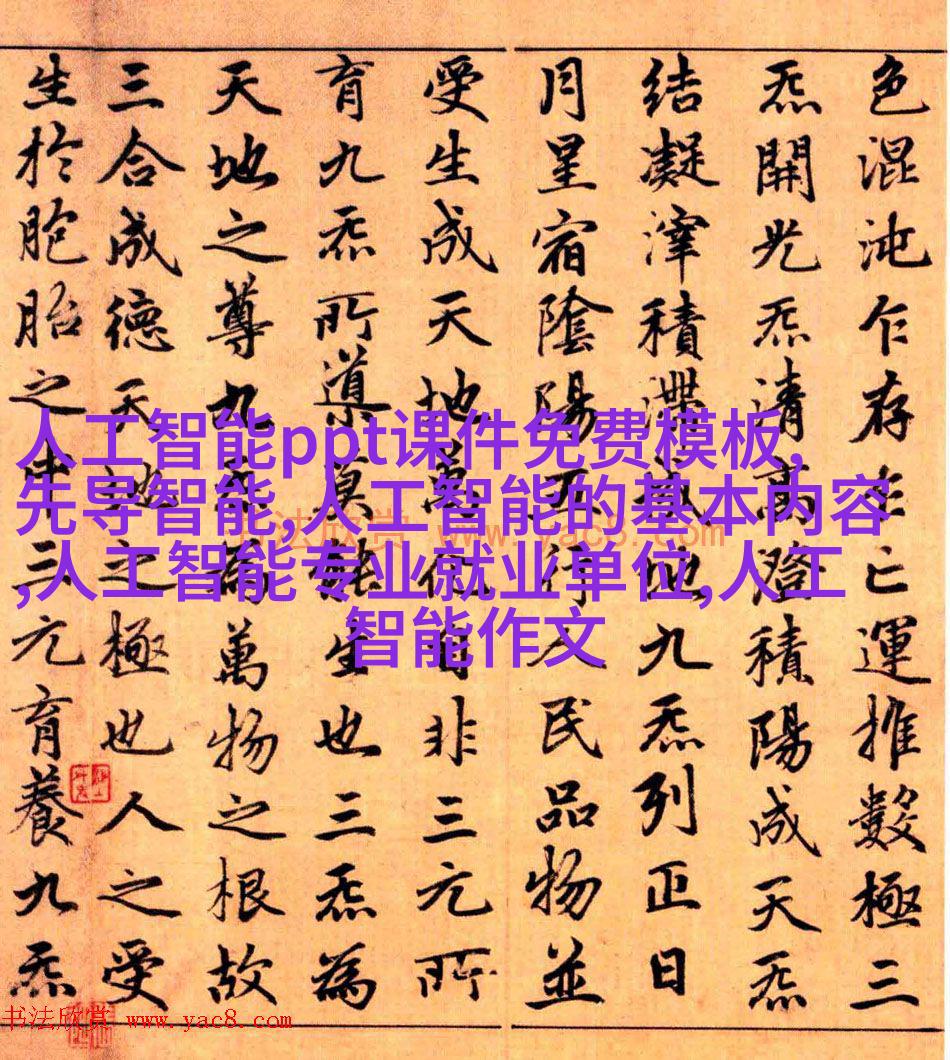 色混沌乍存乍亡運推數極三
炁開光炁清高澄積陽成天炁
結凝滓積滯成地九炁列正日
月星宿陰陽五行人民品物並
受生成天地萬化自非三元所
育九炁所導莫能生也三炁為
天地之尊九炁為萬物之根故
三合成德天地之極也人之受
生於胞胎之中三元育養九炁
人工智能ppt课件免费模板,
先导智能,人工智能的基本内容
,人工智能专业就业单位,人工
智能作文
书法欣赏 www.yac8.com
书法欣赏 www.yac8.com